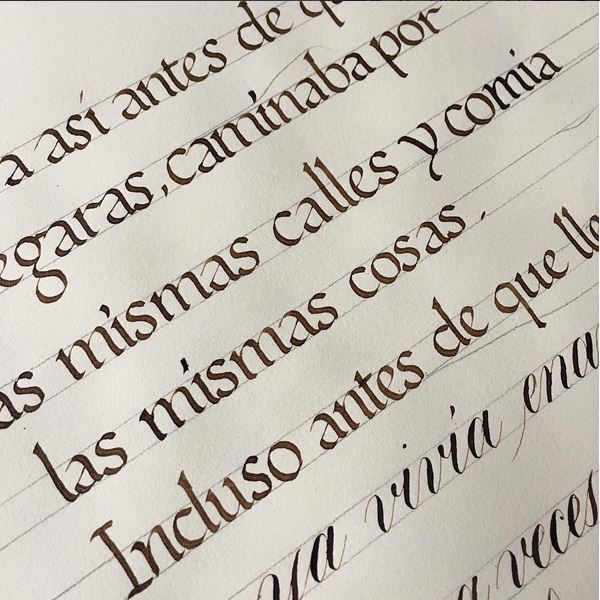 a así antes de
egaras, caminaba por
as mismas calles y comía
las mismas cosas.
Incluso antes de que
ya vivía
a veces